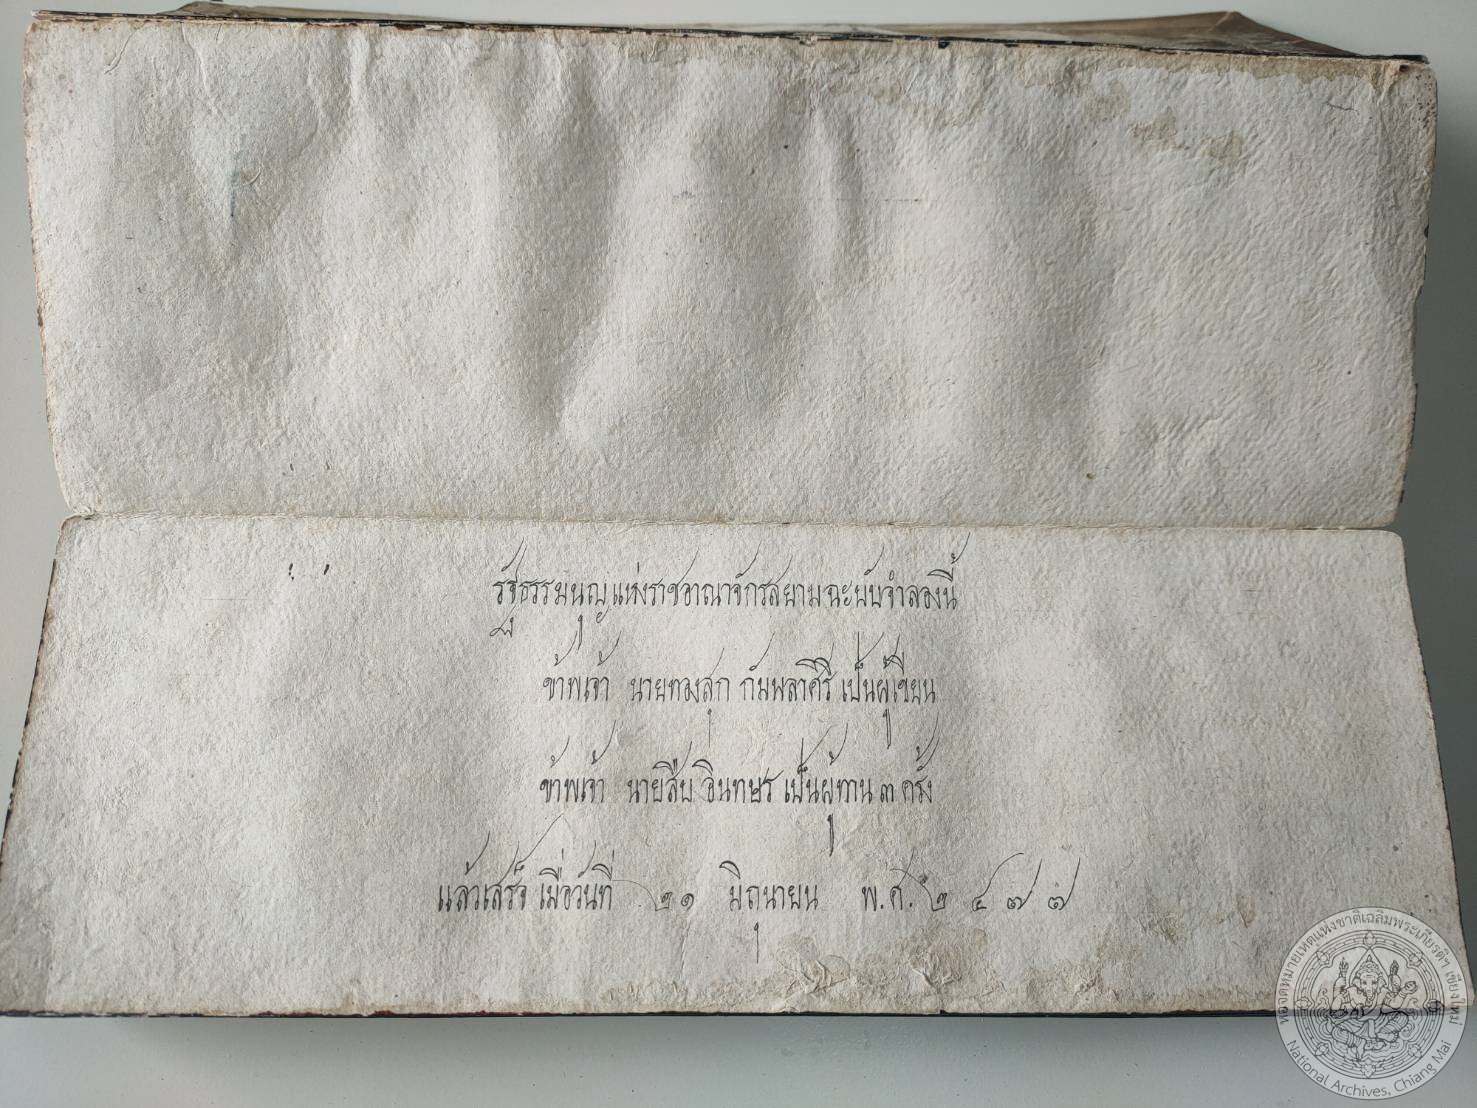 รัฐธรรมนุญแห่งราชอาณาจักรสยามฉะบับจำลองนี้
ข้าพเจ้า นายทองสุก กัมพลาศิริ เป็นผู้เขียน
ข้าพเจ้า นายสืบ อินทษร เป็นผู้ทาน ๓ ครั้ง
แล้วเสร็จ เมื่อวันที่ ๒๑ มิถุนายน พ.ศ. ๒๔๗๗
หอจดหมายเหตุแห่งชาติเฉลิมพระเกียรติฯ เชียงใหม่
National Archives, Chiang Mai